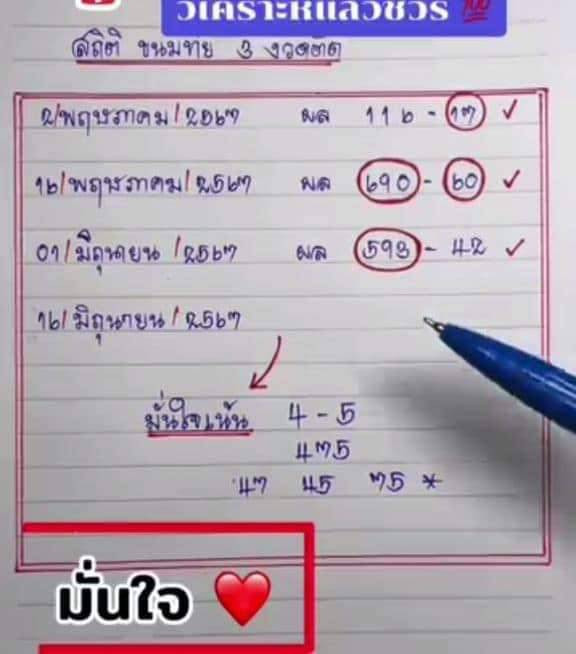 วิเคราะห์แล้วชัวร์ 💯
สถิติ ขนมทัย 3 งวดติด
2/พฤษภาคม/2567 ผล 116 - 17 ✓
16/พฤษภาคม/2567 ผล 690 - 60 ✓
01/มิถุนายน/2567 ผล 593 - 42 ✓
16/มิถุนายน/2567
มั่นใจเน้น 4 - 5
475
47 45 75 *
มั่นใจ ❤️